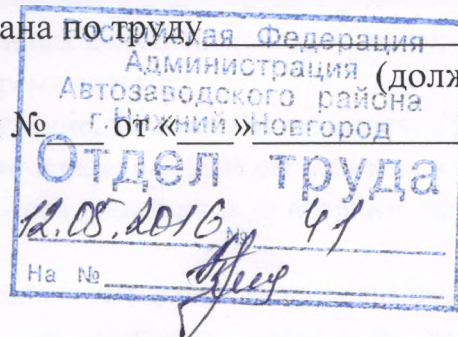 ана по труду
Российская Федерация
Администрация
(долж
Автозаводского района
№ от « »
г. Нижний Новгород
Отдел труда
12.05.2016 № 41
На №